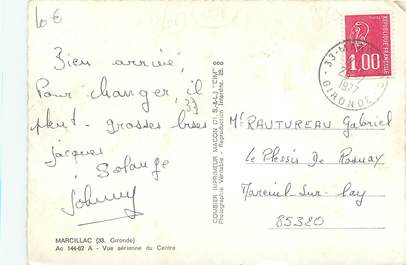 10€
Bien arrivé,
Pour changer, il
pleut - grosses bises
Jacques
Solange
Johnny
MARCILLAC (33. Gironde)
Ac 144-62 A - Vue aérienne du Centre
COMBIER IMPRIMEUR MACON (71. S-&-L) "CIM"
Photographie Véritable - Reproduction Interdite.
33
GIRONDE
1977
REPUBLIQUE FRANÇAISE
1,00
Mr RAUTUREAU Gabriel
Le Plessis De Rosnay
Mareuil-Sur-Lay
85320